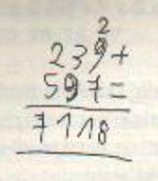 2
239+
597=
7118